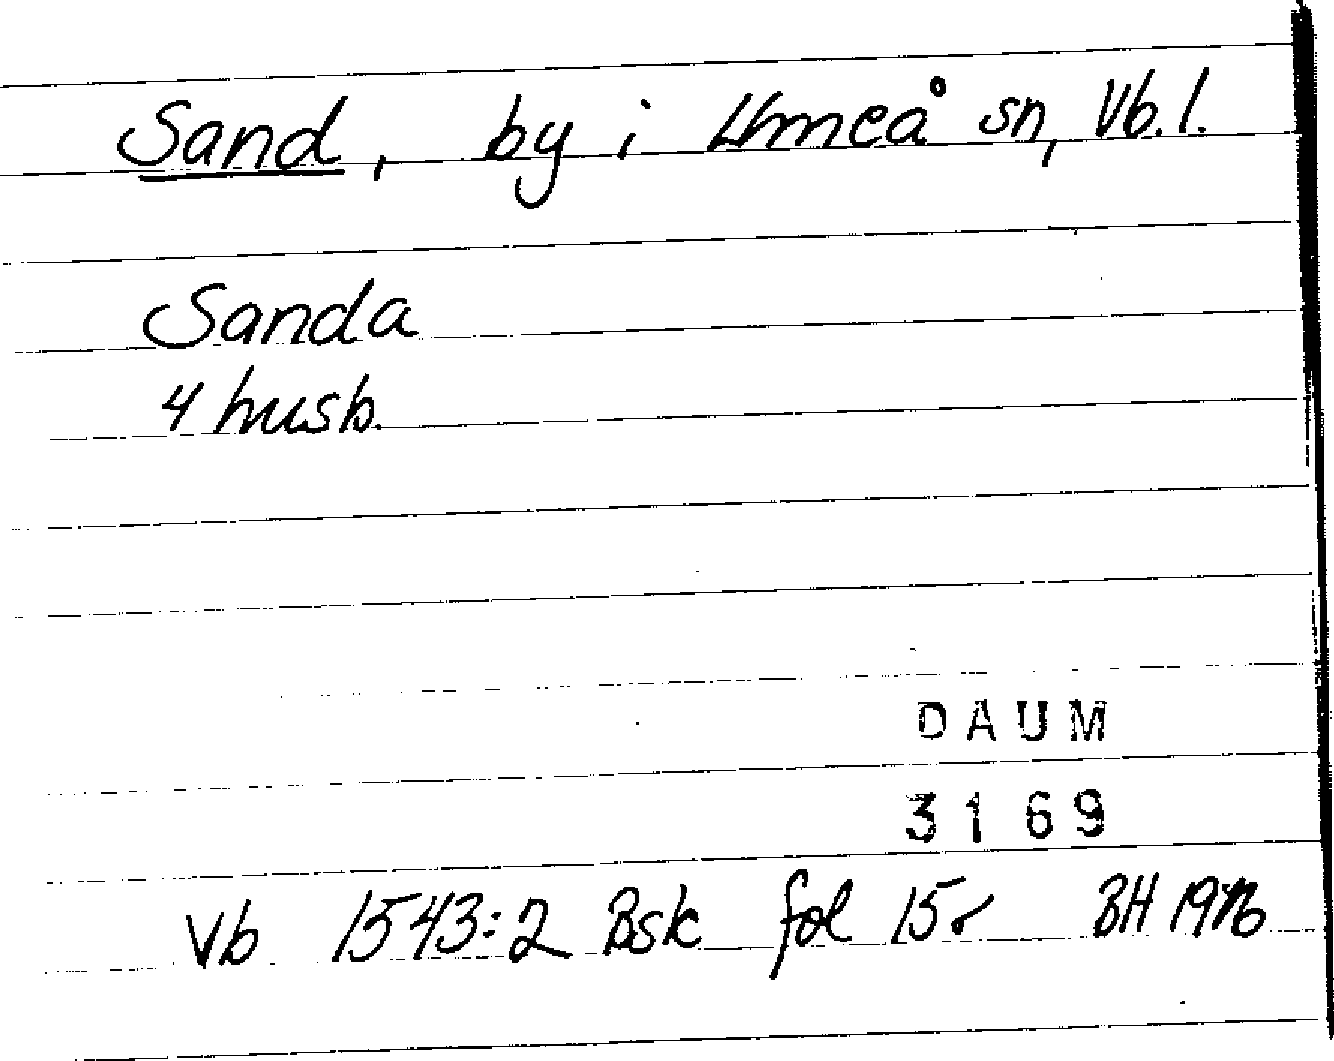 Sand, by i Umeå sn, Vb. l.
Sanda
4 husb.
DAUM
3169
Vb 1543:2 Bsk fol 15r BH 1976